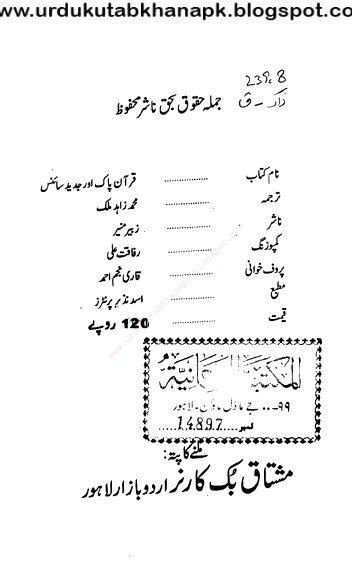 www.urdukutabkhanapk.blogspot.com
239.8
جملہ حقوق بحق ناشر محفوظ
نام کتاب ............ قرآن پاک اور جدید سائنس
ترجمہ ............ محمد زاہد ملک
ناشر ............ زبیر منیر
کمپوزنگ ............ رفاقت علی
پروف خوانی ............ قاری نجم احمد
مطبع ............ اسد نذیر پرنٹرز
قیمت ............ 120 روپے
المکتبۃ الرحمانیۃ
۹۹-.. جے ماڈل ٹاؤن - لاہور
نمبر....14897....
ملنے کا پتہ:
مشتاق بُک کارنر اردو بازار لاہور